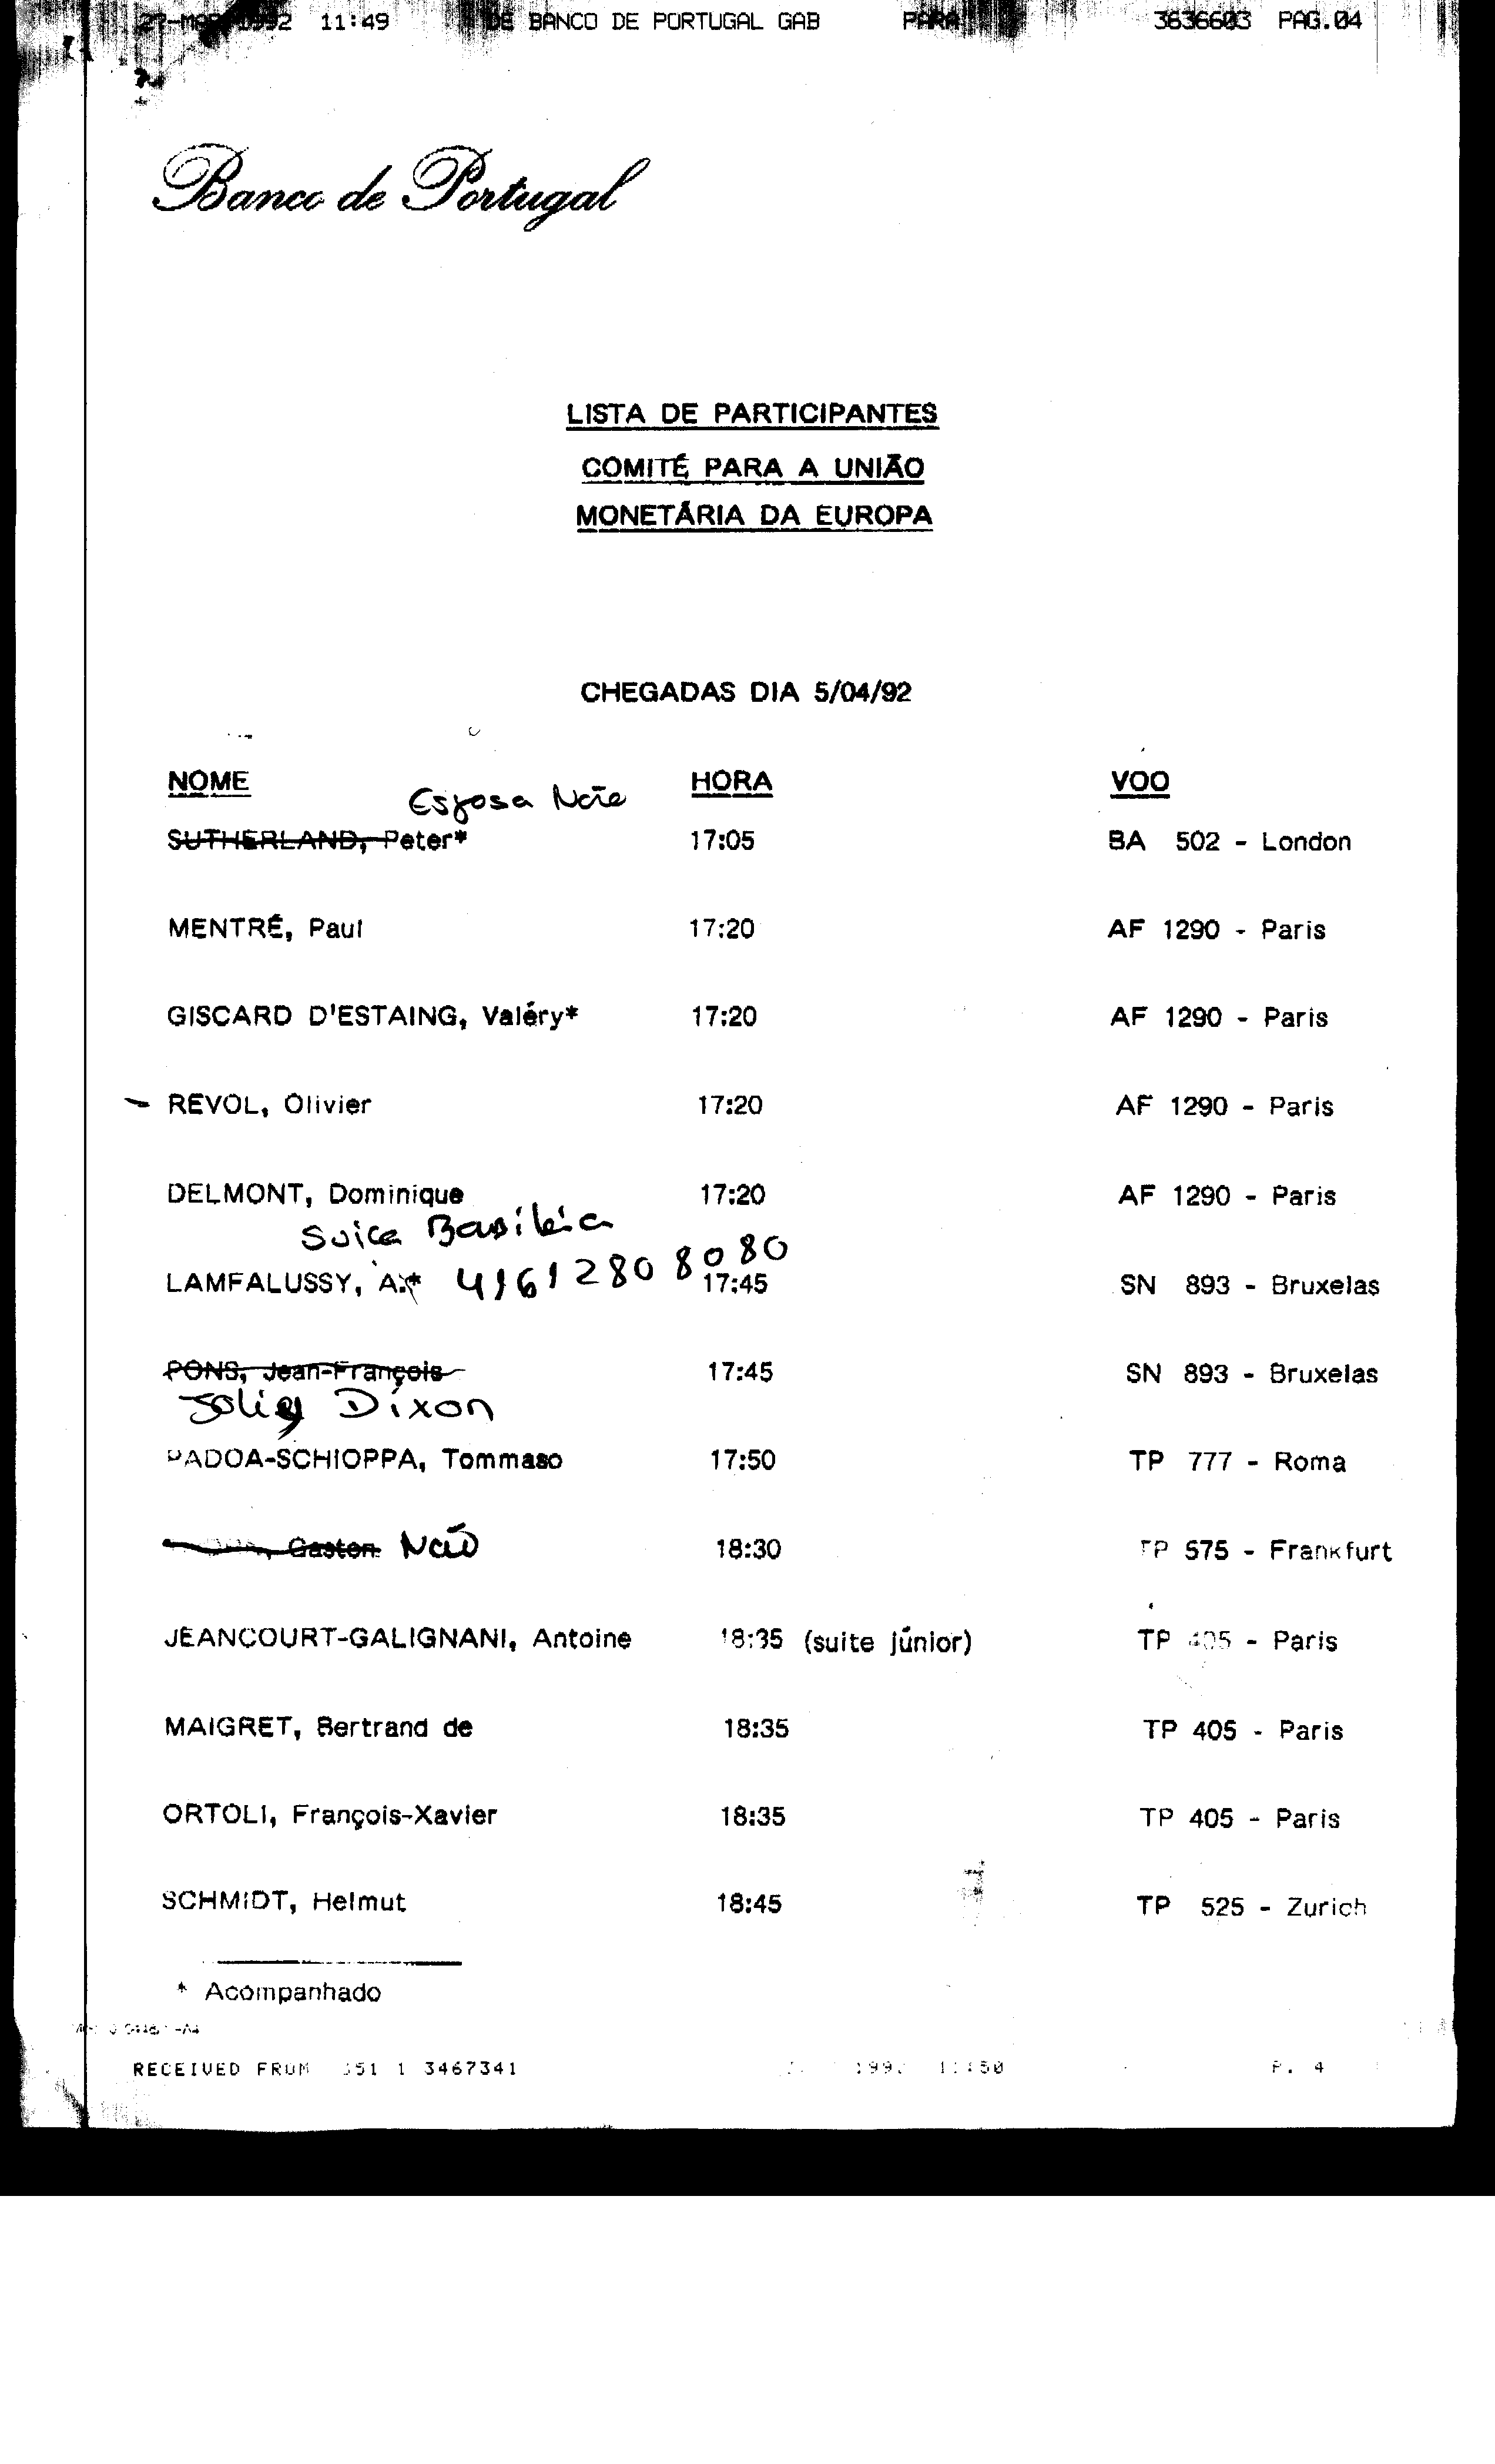 1992 11:49 DE BANCO DE PORTUGAL GAB PARA 3636603 PAG.04
Banco de Portugal
LISTA DE PARTICIPANTES
COMITÉ PARA A UNIÃO
MONETÁRIA DA EUROPA
CHEGADAS DIA 5/04/92
NOME HORA VOO
Esposa Não
SUTHERLAND, Peter* 17:05 BA 502 - London
MENTRÉ, Paul 17:20 AF 1290 - Paris
GISCARD D'ESTAING, Valéry* 17:20 AF 1290 - Paris
REVOL, Olivier 17:20 AF 1290 - Paris
DELMONT, Dominique 17:20 AF 1290 - Paris
Suica Basileia
LAMFALUSSY, A.* 41612808080 17:45 SN 893 - Bruxelas
PONS, Jean-François 17:45 SN 893 - Bruxelas
Dixon
PADOA-SCHIOPPA, Tommaso 17:50 TP 777 - Roma
Gaston Não 18:30 TP 575 - Frankfurt
JEANCOURT-GALIGNANI, Antoine 18:35 (suite júnior) TP 405 - Paris
MAIGRET, Bertrand de 18:35 TP 405 - Paris
ORTOLI, François-Xavier 18:35 TP 405 - Paris
SCHMIDT, Helmut 18:45 TP 525 - Zurich
* Acompanhado
RECEIVED FROM 351 1 3467341 P. 4